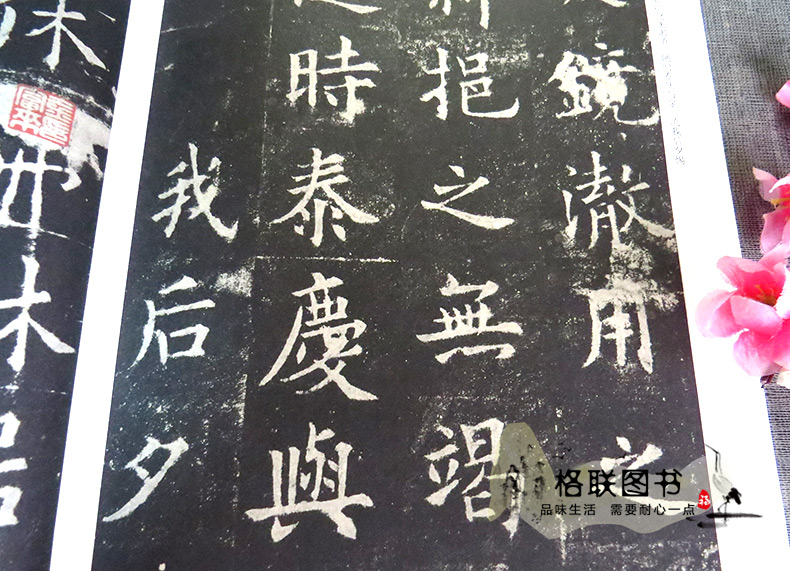 鏡澈用之
挹之無竭
時泰慶與
我后夕
休
格联图书
品味生活 需要耐心一点
福